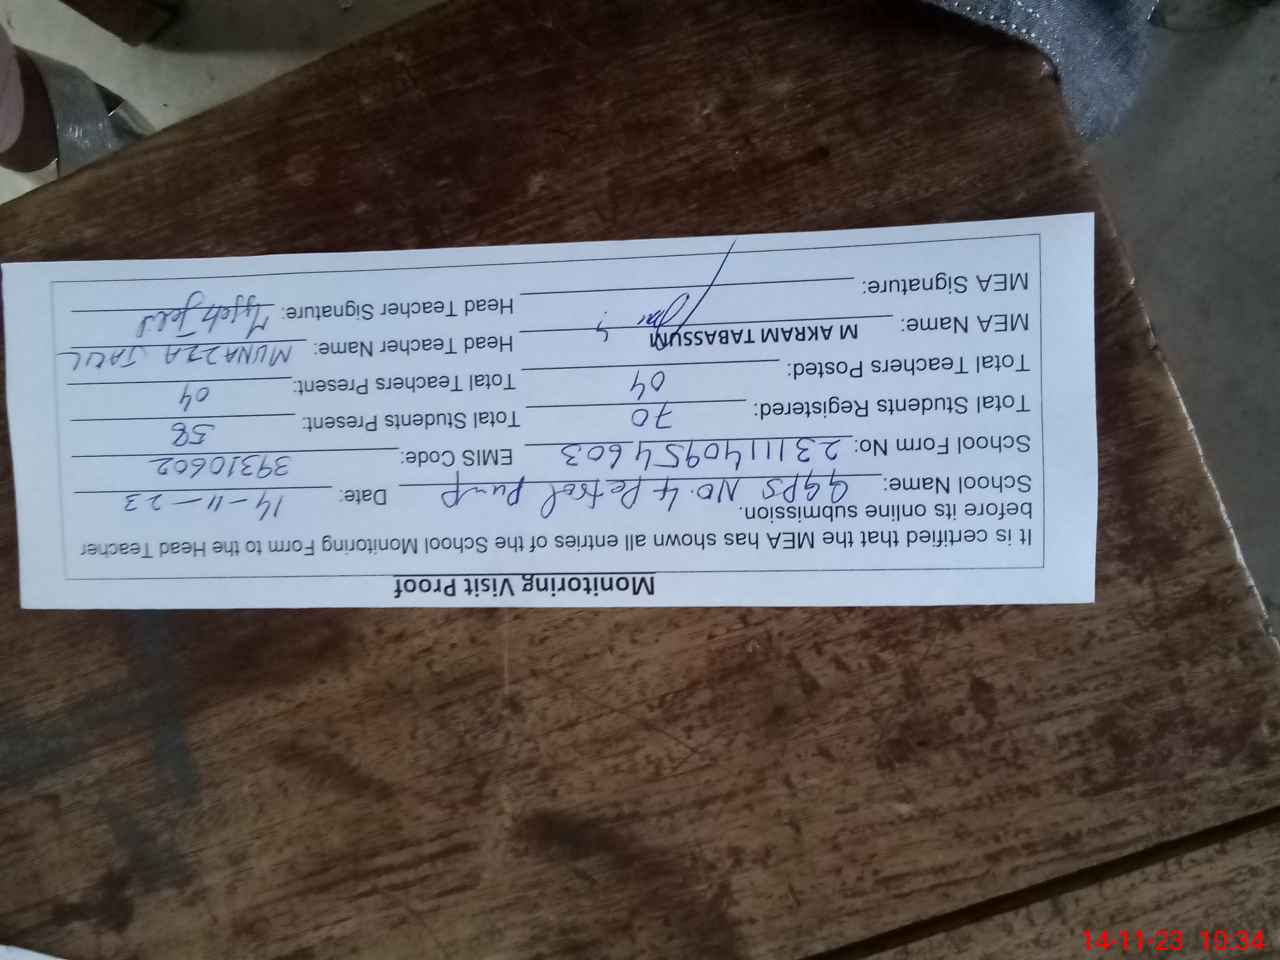 Monitoring Visit Proof
It is certified that the MEA has shown all entries of the School Monitoring Form to the Head Teacher
before its online submission.
School Name: GGPS NO.4 Petrol Pump Date: 14-11-23
School Form No: 2311140954603 EMIS Code: 39310602
Total Students Registered: 70 Total Students Present: 58
Total Teachers Posted: 04 Total Teachers Present: 04
MEA Name: M AKRAM TABASSUM Head Teacher Name: MUNAZZA JALIL
MEA Signature: Head Teacher Signature:
14-11-23 10:34